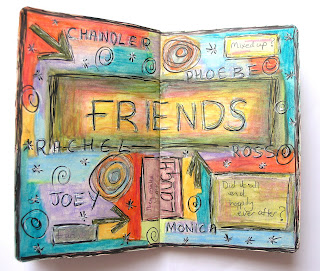 CHANDLER
Mixed up?
PHOEBE
FRIENDS
RACHEL
ROSS
JOEY
LAUGH
Did it end
and
happily
ever after?
MONICA